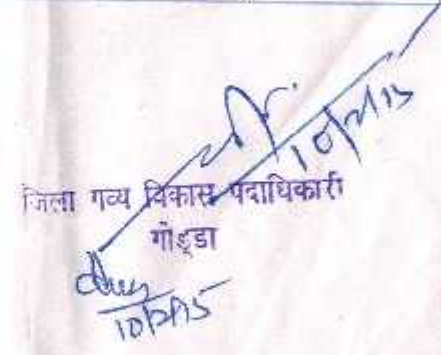 10/2/15
जिला गव्य विकास पदाधिकारी
गोड्डा
10/2/15